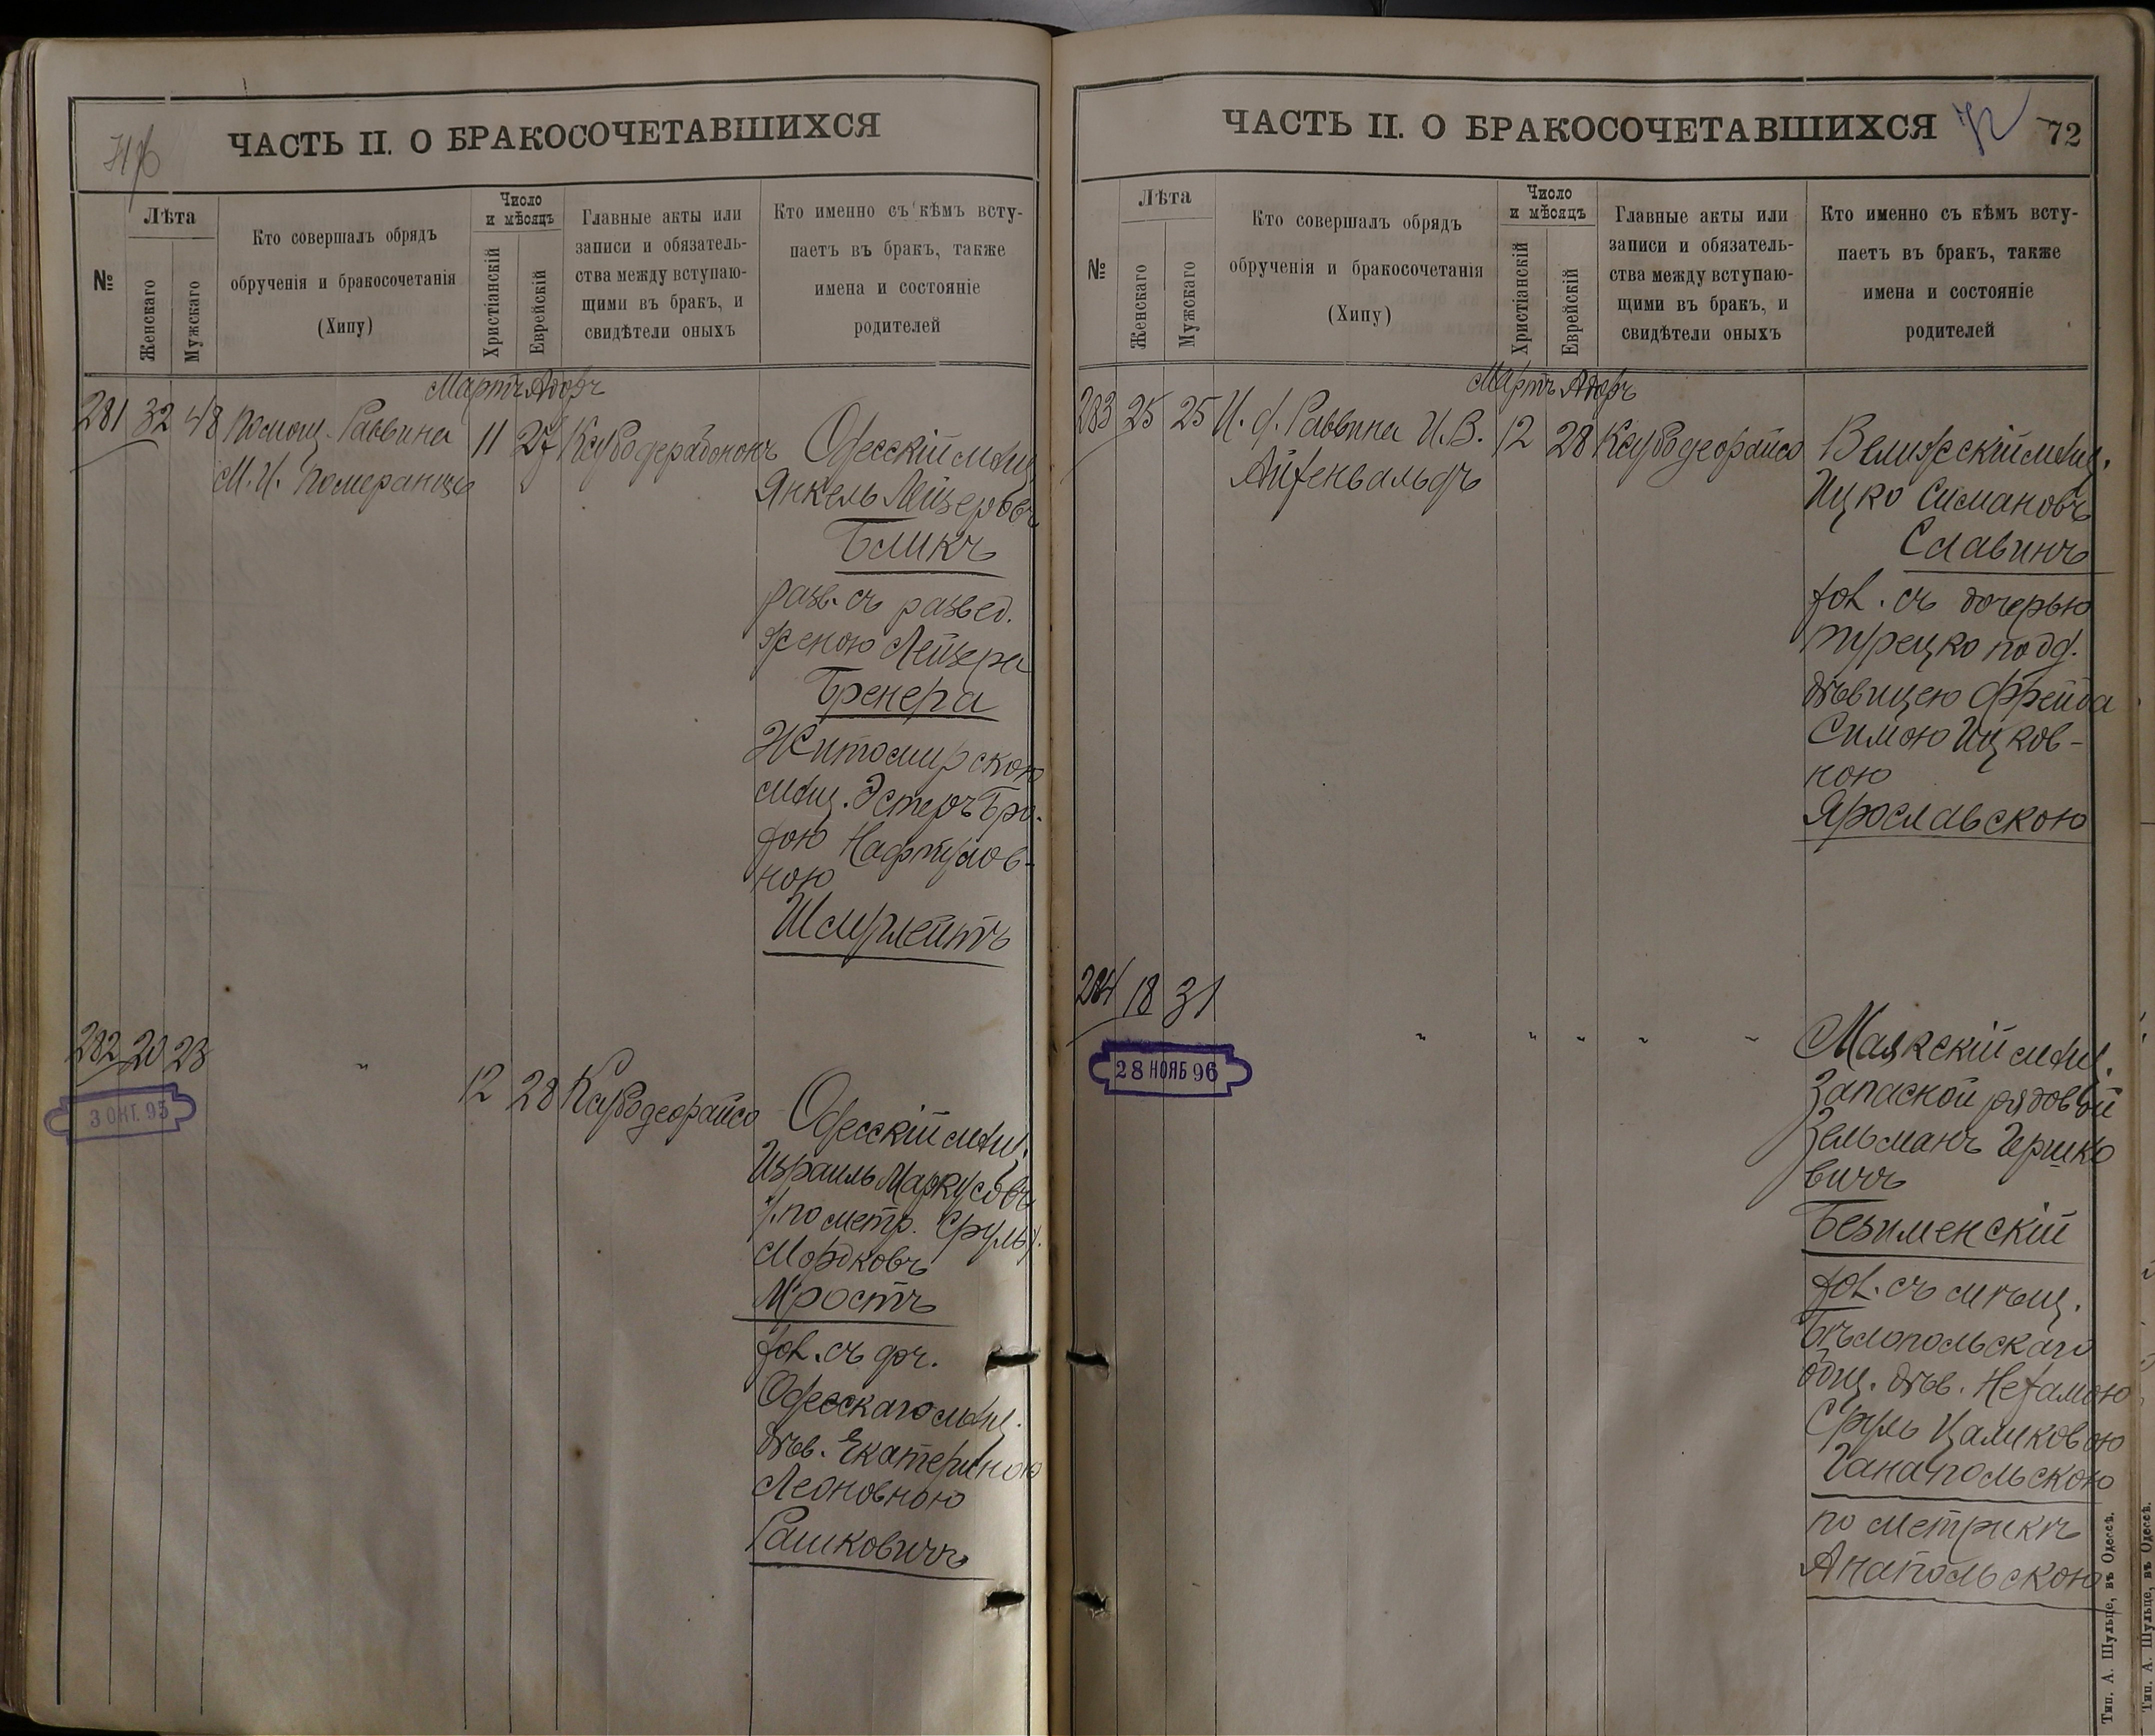 ЧАСТЬ II. О БРАКОСОЧЕТАВШИХСЯ
№
Лѣта
Женскаго
Мужскаго
Кто совершалъ обрядъ
обрученія и бракосочетанія
(Хипу)
Число
и мѣсяцъ
Христіанскій
Еврейскій
Главные акты или
записи и обязатель-
ства между вступаю-
щими въ бракъ, и
свидѣтели оныхъ
Кто именно съ кѣмъ всту-
паетъ въ бракъ, также
имена и состояніе
родителей
Мартъ Адоръ
281 32 48 Помощ. Раввина
М. И. Померанцъ
11 27
Одесскій мѣщ.
Янкель Лейзеровъ
Бликъ
разв. съ развед.
женою Лейзера
Бренера
Житомирскою
мѣщ. Эстеръ Бро-
хою Нафтулов-
ною
Шмурлейтъ
282 20 23 " 12 28 Касводеорайсо
3 ОКТ. 95
Одесскій мѣщ.
Израиль Маркусовъ
/:по метр. Сруль:/
Мордковъ
Мростъ
хол. съ доч.
Одесскаго мѣщ.
дѣв. Екатериною
Леоновною
Рашковичъ
ЧАСТЬ II. О БРАКОСОЧЕТАВШИХСЯ
72
№
Лѣта
Женскаго
Мужскаго
Кто совершалъ обрядъ
обрученія и бракосочетанія
(Хипу)
Число
и мѣсяцъ
Христіанскій
Еврейскій
Главные акты или
записи и обязатель-
ства между вступаю-
щими въ бракъ, и
свидѣтели оныхъ
Кто именно съ кѣмъ всту-
паетъ въ бракъ, также
имена и состояніе
родителей
Мартъ Адоръ
283 25 25 И. д. Раввина И. В.
Айхенвальдъ
12 28 Касводеорайсо
Велижскій мѣщ.
Ицко Симановъ
Славинъ
хол. съ дочерью
турецко подд.
дѣвицею Фрейда
Симою Ицков-
ною
Ярославскою
284 18 31 " " " " "
28 НОЯБ 96
Маякскій мѣщ.
Запаской рядовой
Зельманъ Гершко
вичъ
Безименскій
хол. съ мѣщ.
Бѣлопольскаго
общ. дѣв. Нехамою
Сруль Цаликовою
Ганапольскою
по метрикѣ
Анапольскою
Тип. А. Шульце, въ Одессѣ.
Тип. А. Шульце, въ Одессѣ.